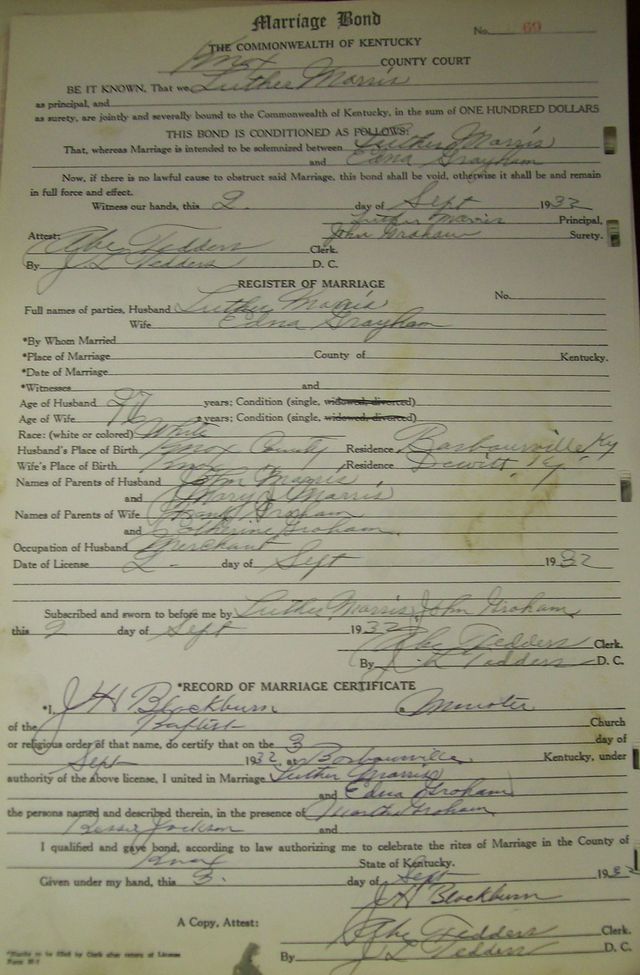 Marriage Bond
No. 69
THE COMMONWEALTH OF KENTUCKY
Knox COUNTY COURT
BE IT KNOWN, That we Luther Morris
as principal, and
as surety, are jointly and severally bound to the Commonwealth of Kentucky, in the sum of ONE HUNDRED DOLLARS
THIS BOND IS CONDITIONED AS FOLLOWS:
That, whereas Marriage is intended to be solemnized between Luther Morris
and Edna Grayham
Now, if there is no lawful cause to obstruct said Marriage, this bond shall be void, otherwise it shall be and remain
in full force and effect.
Witness our hands, this 2 day of Sept 1932
Luther Morris Principal,
Attest: John Graham Surety.
Abe Fedders Clerk.
By J. L. Fedders D. C.
REGISTER OF MARRIAGE
No.
Full names of parties, Husband Luther Morris
Wife Edna Grayham
*By Whom Married
*Place of Marriage County of Kentucky.
*Date of Marriage
*Witnesses and
Age of Husband years; Condition (single, widowed, divorced)
Age of Wife years; Condition (single, widowed, divorced)
Race: (white or colored) White
Husband's Place of Birth Knox County Residence Barbourville Ky
Wife's Place of Birth Knox Residence Dewitt, Ky.
Names of Parents of Husband John Morris
and Mary J. Morris
Names of Parents of Wife Graham
and Catherine Graham
Occupation of Husband Merchant
Date of License 2 day of Sept 1932
Subscribed and sworn to before me by Luther Morris, John Graham
this 2 day of Sept 1932
Abe Fedders Clerk.
By J. L. Fedders D. C.
*RECORD OF MARRIAGE CERTIFICATE
*I, J H Blackburn Minister
of the Baptist Church
or religious order of that name, do certify that on the 3 day of
Sept 1932, at Barbourville Kentucky, under
authority of the above license, I united in Marriage Luther Morris
and Edna Graham
the persons named and described therein, in the presence of Martha Graham
Bessie Jackson and
I qualified and gave bond, according to law authorizing me to celebrate the rites of Marriage in the County of
Knox State of Kentucky.
Given under my hand, this 3 day of Sept 1932
J H Blackburn
A Copy, Attest: Abe Fedders Clerk.
By J L Fedders D. C.
*Blanks to be filled by Clerk after return of License